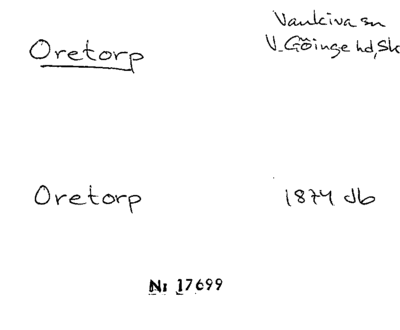 Oretorp
Vankiva sn
V. Göinge hd, Sk
Oretorp
1874 db
Nr 17699